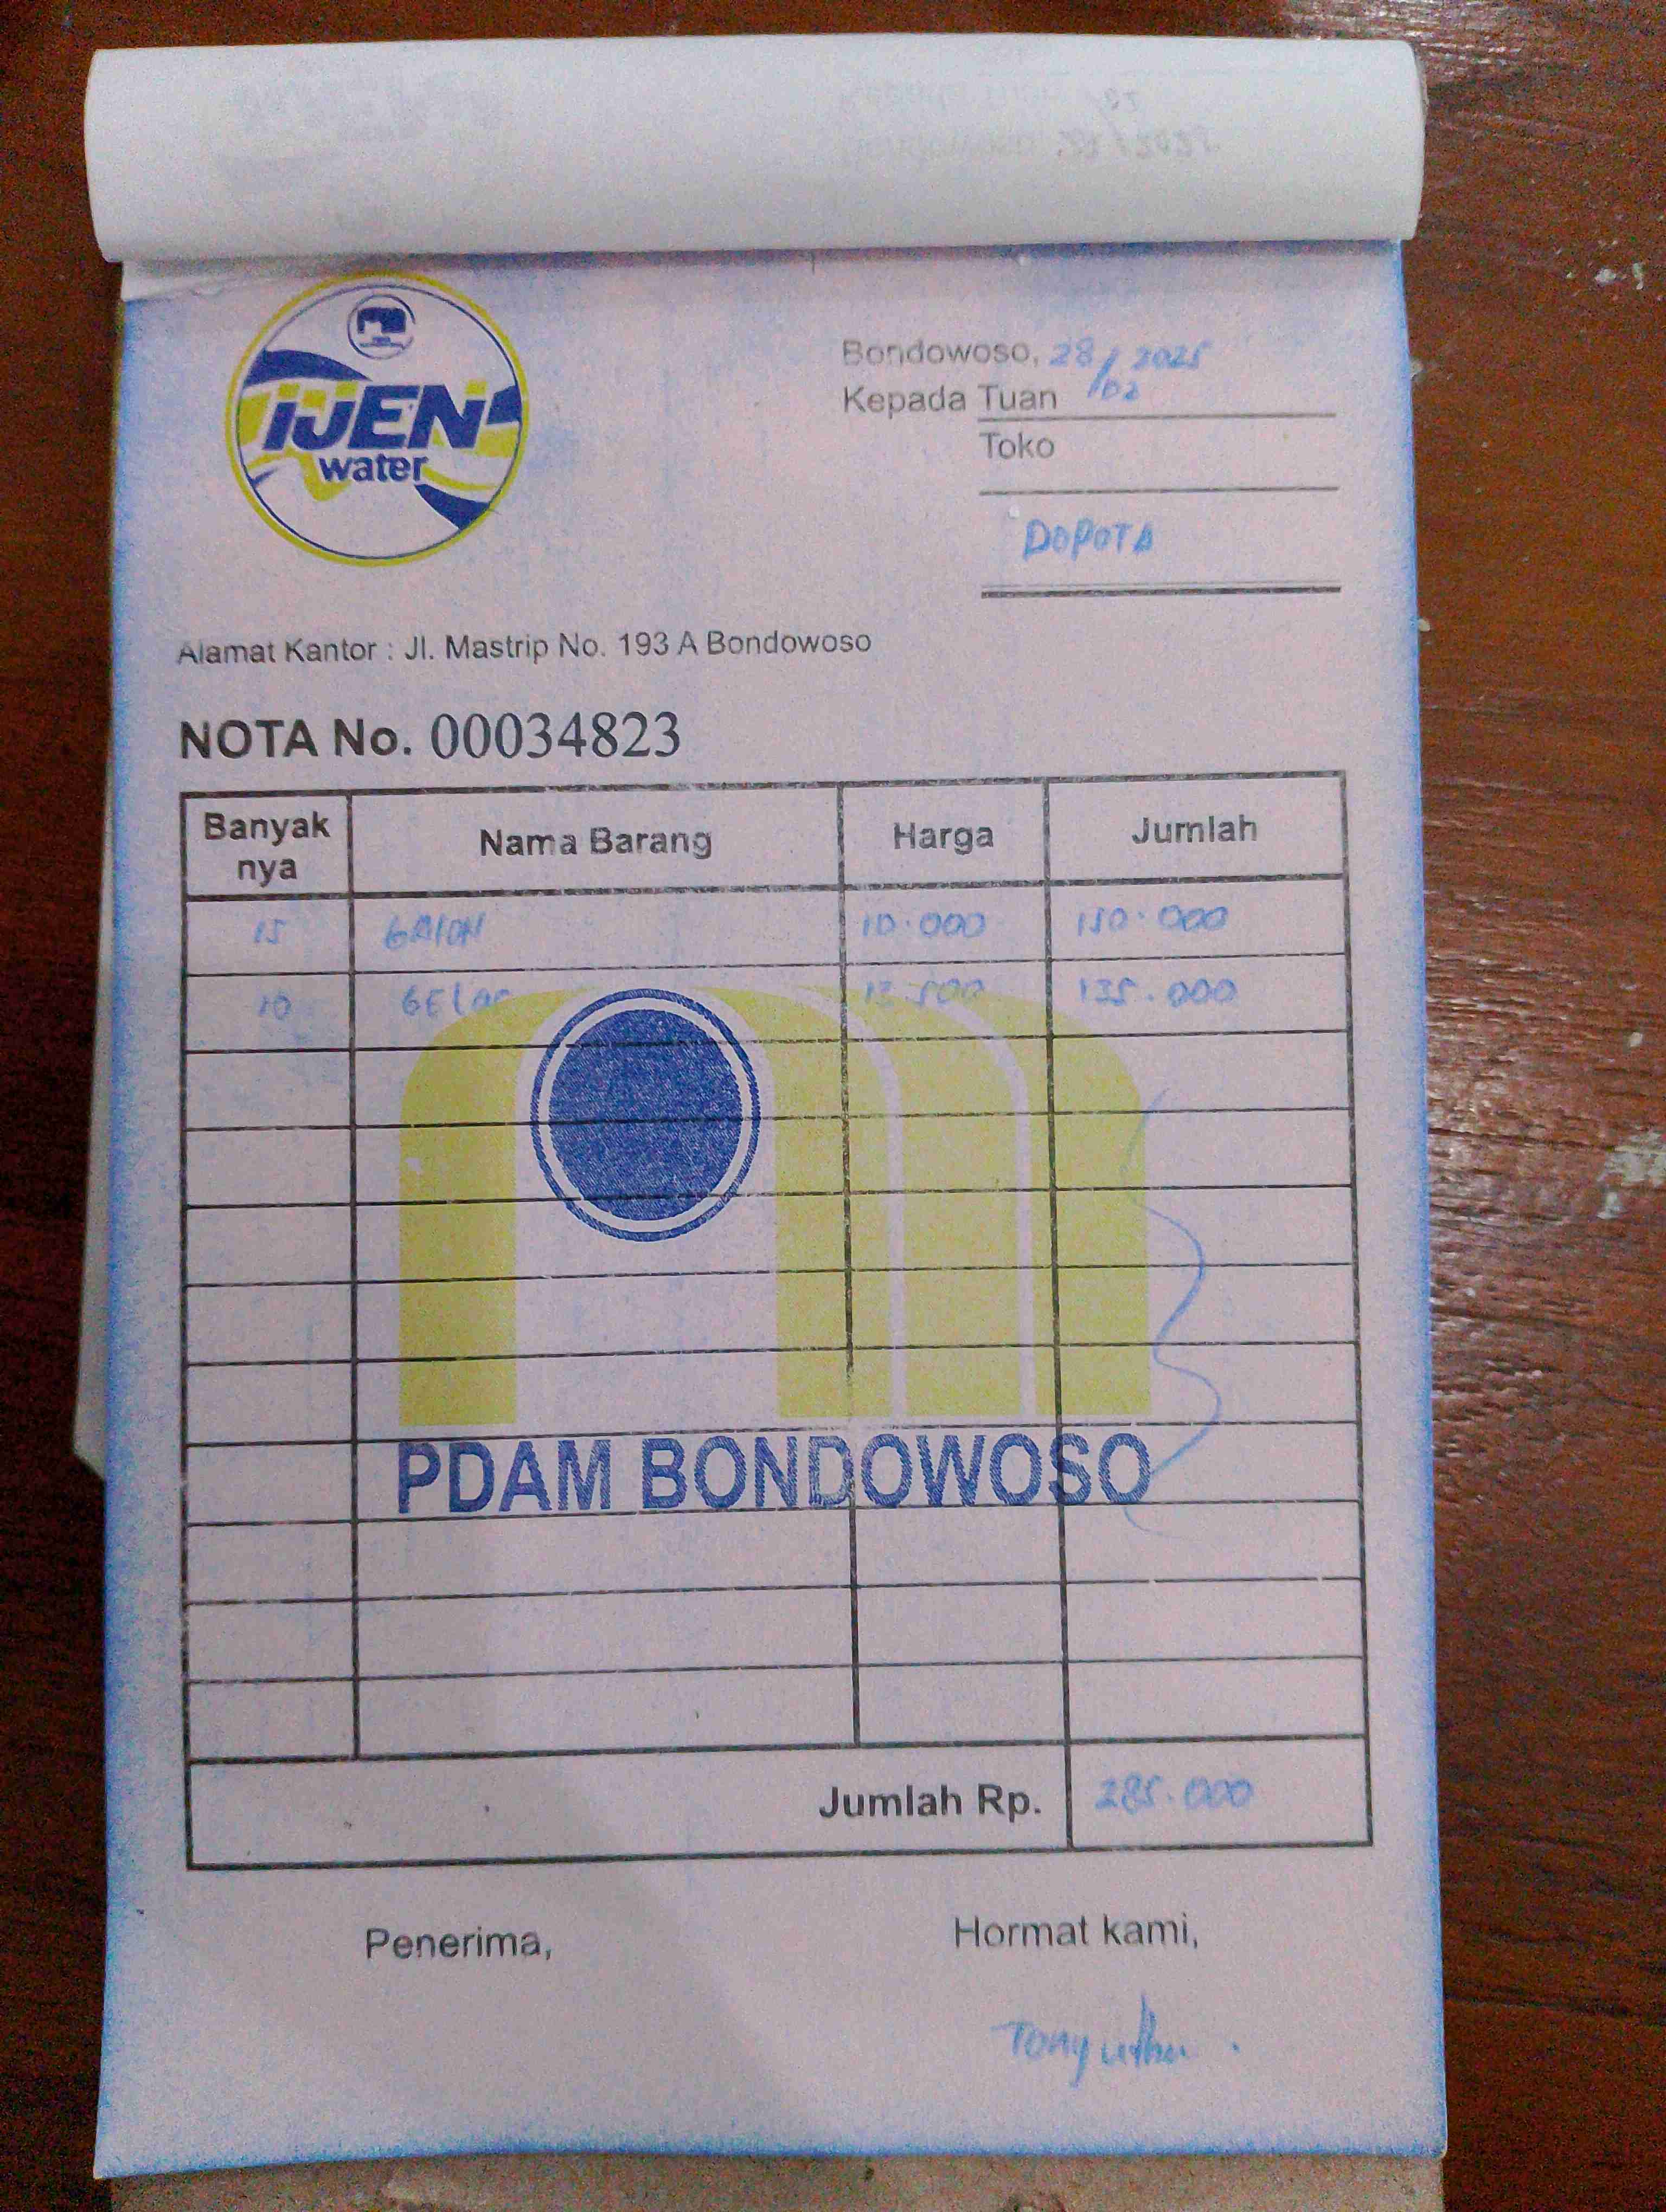 iJEN
water
Bondowoso, 28/02 2025
Kepada Tuan
Toko
DOPOTA
Alamat Kantor : Jl. Mastrip No. 193 A Bondowoso
NOTA No. 00034823
Banyak nya Nama Barang Harga Jumlah
15 GALON 10.000 150.000
10 GELAS 13.500 135.000
PDAM BONDOWOSO
Jumlah Rp. 285.000
Penerima, Hormat kami,
Tony